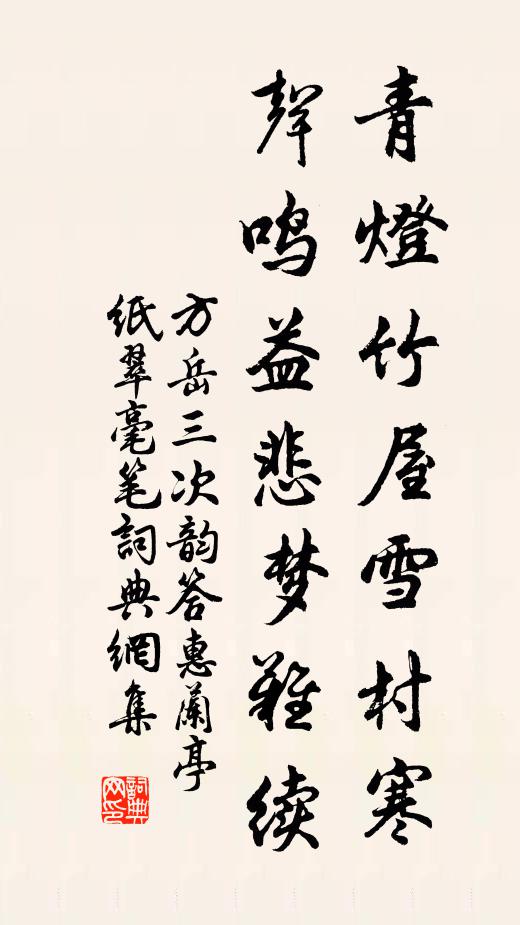 青燈竹屋雪村寒
聲鸣益悲梦難续
方岳三次韵答惠蘭亭
纸翠毫笔詞典網集
詞典网印